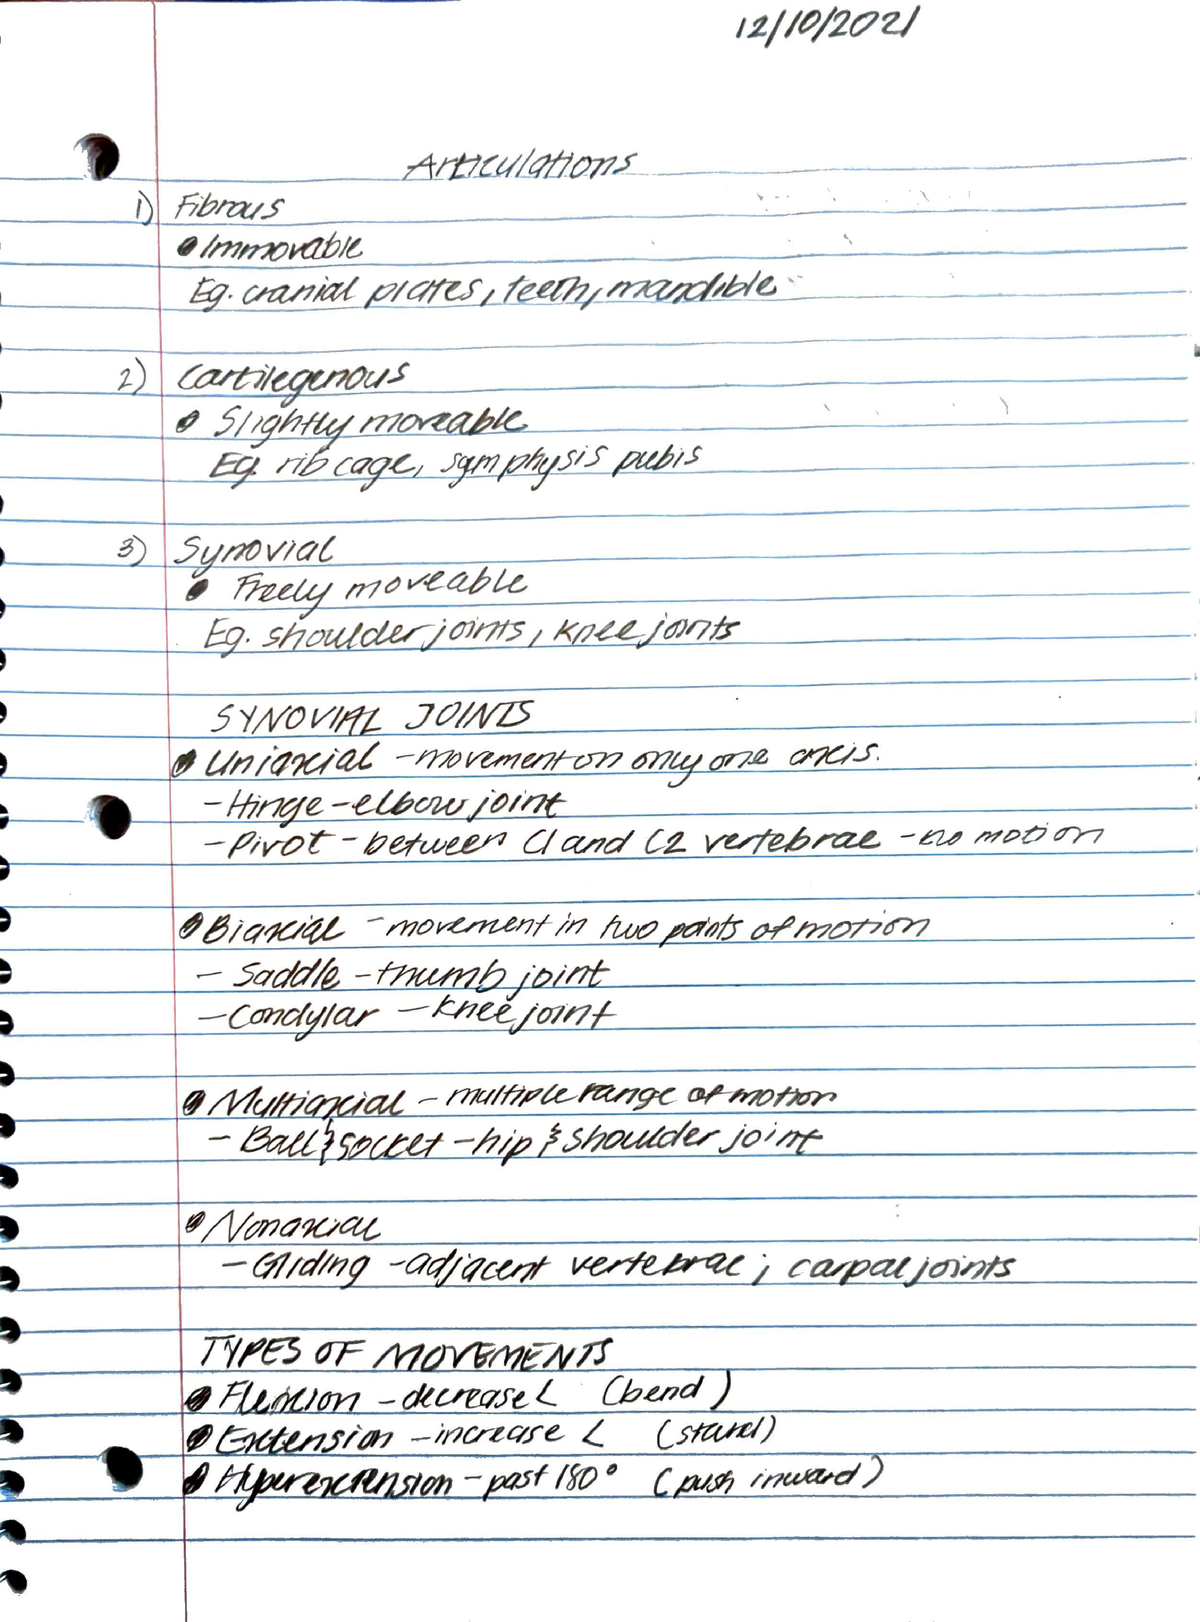 12/10/2021
Articulations
1) Fibrous
• Immovable
Eg. cranial plates, teeth, mandible
2) Cartilegenous
• Slightly moveable
Eg. rib cage, symphysis pubis
3) Synovial
• Freely moveable
Eg. shoulder joints, knee joints
SYNOVIAL JOINTS
• Uniaxial - movement on only one axis.
- Hinge - elbow joint
- Pivot - between C1 and C2 vertebrae - no motion
• Biaxial - movement in two points of motion
- Saddle - thumb joint
- Condylar - knee joint
• Multiaxial - multiple range of motion
- Ball & socket - hip & shoulder joint
• Nonaxial
- Gliding - adjacent vertebrae ; carpal joints
TYPES OF MOVEMENTS
• Flexion - decrease < (bend)
• Extension - increase < (stand)
• Hyperextension - past 180° (push inward)